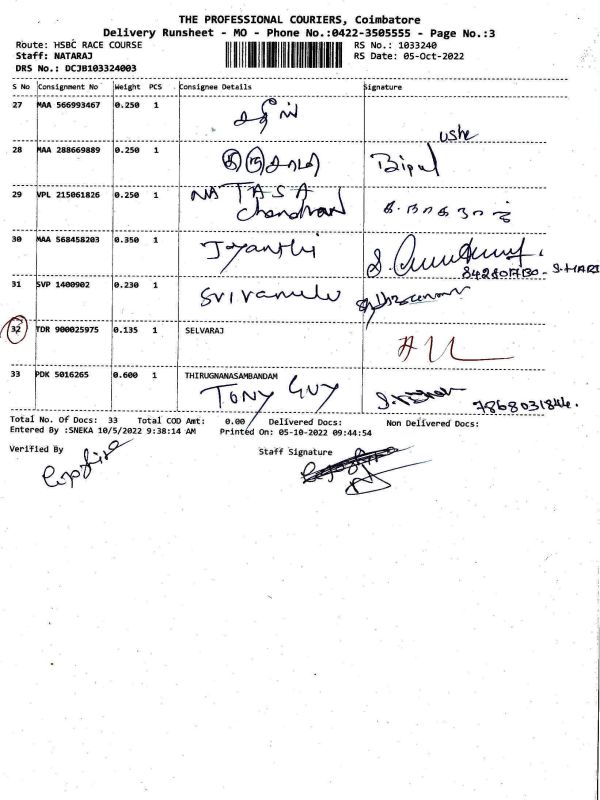 THE PROFESSIONAL COURIERS, Coimbatore
Delivery Runsheet - MO - Phone No.:0422-3505555 - Page No.:3
Route: HSBC RACE COURSE
RS No.: 1033240
Staff: NATARAJ
RS Date: 05-Oct-2022
DRS No.: DCJB103324003
S No Consignment No Weight PCS Consignee Details Signature
27 MAA 566993467 0.250 1
28 MAA 288669889 0.250 1 Bipul
29 VPL 215061826 0.250 1 NATASA
Chandran க. நாகநாதன்
30 MAA 568458203 0.350 1 Jyanthi
31 SVP 1400902 0.230 1 Srivamulu
32 TDR 900025975 0.135 1 SELVARAJ
33 PDK 5016265 0.600 1 THIRUGNANASAMBANDAM
TONY GUY 7868031844.
Total No. Of Docs: 33 Total COD Amt: 0.00 Delivered Docs: Non Delivered Docs:
Entered By :SNEKA 10/5/2022 9:38:14 AM Printed On: 05-10-2022 09:44:54
Verified By Staff Signature